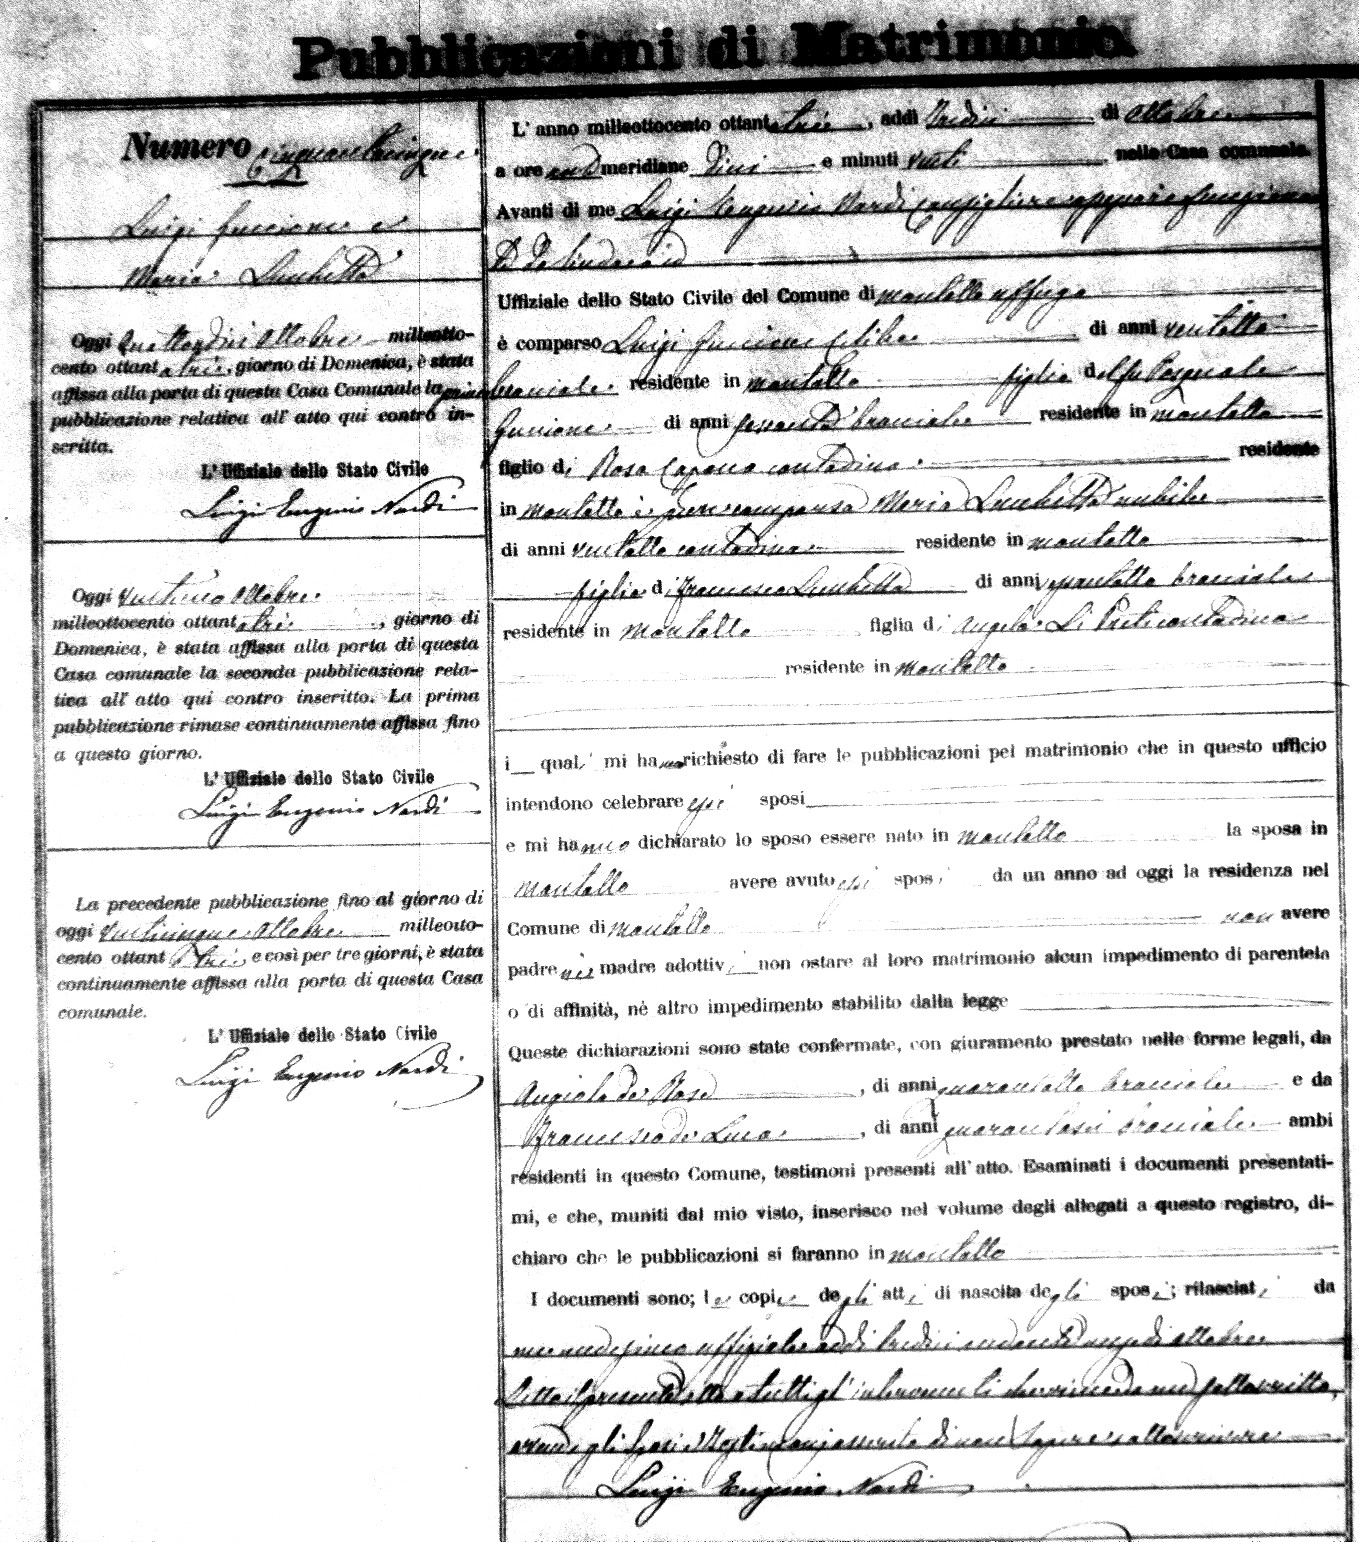 Pubblicazioni di Matrimonio
Numero Cinquantacinque
Luigi Guccione e
Maria Lucchetta
Oggi Quattordici Ottobre milleotto-
cento ottantatre, giorno di Domenica, è stata
affissa alla porta di questa Casa Comunale la prima
pubblicazione relativa all' atto qui contro in-
scritta.
L' Uffiziale dello Stato Civile
Luigi Eugenio Nardi
Oggi Ventuno Ottobre
milleottocento ottantatre, giorno di
Domenica, è stata affissa alla porta di questa
Casa comunale la seconda pubblicazione rela-
tiva all' atto qui contro inscritto. La prima
pubblicazione rimase continuamente affissa fino
a questo giorno.
L' Uffiziale dello Stato Civile
Luigi Eugenio Nardi
La precedente pubblicazione fino al giorno di
oggi Venticinque Ottobre milleotto-
cento ottantatre, e così per tre giorni, è stata
continuamente affissa alla porta di questa Casa
comunale.
L' Uffiziale dello Stato Civile
Luigi Eugenio Nardi
L' anno milleottocento ottantatre, addì tredici di Ottobre
a ore antimeridiane dieci e minuti venti nella Casa comunale.
Avanti di me Luigi Eugenio Nardi Consigliere
da Sindaco
Uffiziale dello Stato Civile del Comune di Montalto Uffugo
è comparso Luigi Guccione celibe di anni ventotto
bracciale residente in Montalto figlio del fu Pasquale
Guccione di anni sessanta bracciale residente in Montalto
figlio di Rosa Capano contadina residente
in Montalto è pure comparsa Maria Lucchetta nubile
di anni ventotto contadina residente in Montalto
figlia di Francesco Lucchetta di anni bracciale
residente in Montalto figlia di Angela Li Preti contadina
residente in Montalto
i quali mi hanno richiesto di fare le pubblicazioni pel matrimonio che in questo ufficio
intendono celebrare essi sposi
e mi hanno dichiarato lo sposo essere nato in Montalto la sposa in
Montalto avere avuto essi sposi da un anno ad oggi la residenza nel
Comune di Montalto non avere
padre nè madre adottivi non ostare al loro matrimonio alcun impedimento di parentela
o di affinità, nè altro impedimento stabilito dalla legge
Queste dichiarazioni sono state confermate, con giuramento prestato nelle forme legali, da
Angiolo de Rose, di anni quarantotto bracciale e da
Francesco de Luca, di anni quarantasei bracciale ambi
residenti in questo Comune, testimoni presenti all' atto. Esaminati i documenti presentati-
mi, e che, muniti dal mio visto, inserisco nel volume degli allegati a questo registro, di-
chiaro che le pubblicazioni si faranno in Montalto
I documenti sono; le copie degli atti di nascita degli sposi; rilasciati da
me medesimo uffiziale addì tredici andante mese di ottobre
Letto il presente atto a tutti gl' intervenuti da me sottoscritto,
avendo gli sposi e testimoni asserito di non sapere sottoscrivere
Luigi Eugenio Nardi